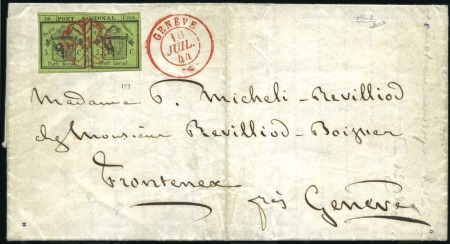 10 PORT CANTONAL Cent.
Port local Port local
GENÈVE
JUIL.
44
Madame P. Micheli-Revilliod
chez Monsieur Revilliod-Boissier
Frontenex
près Genève